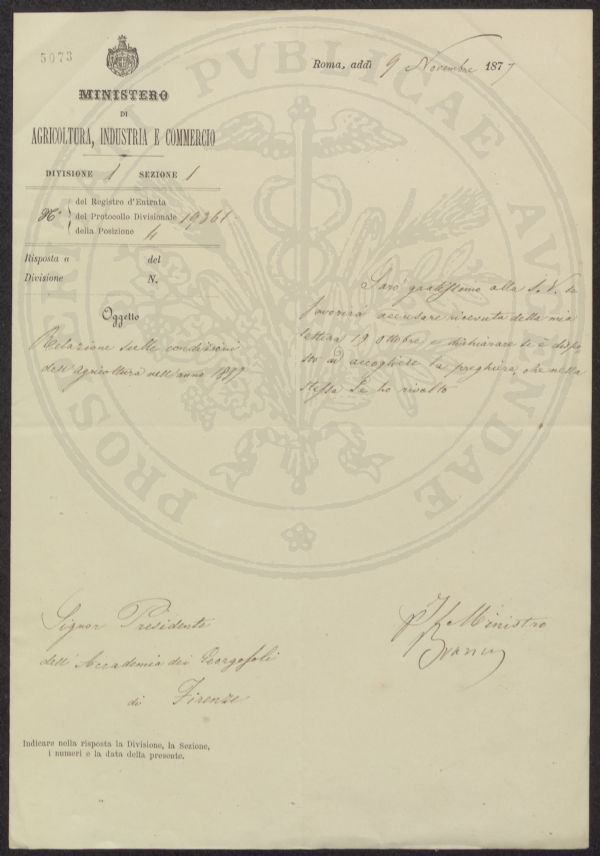 5073
Roma, addì 9 Novembre 1877
MINISTERO
DI
AGRICOLTURA, INDUSTRIA E COMMERCIO
DIVISIONE 1 SEZIONE 1
N.° del Registro d'Entrata
del Protocollo Divisionale 19361
della Posizione 4
Risposta a del
Divisione N.
Oggetto
Relazione sulle condizioni
dell'agricoltura nell'anno 1877
Sarò gratissimo alla S. V. se
favorirà accusare ricevuta della mia
lettera 19 Ottobre e dichiarare se è dispo
sto ad accogliere la preghiera, che nella
stessa Le ho rivolto
Signor Presidente
dell'Accademia dei Georgofili
di Firenze
Pel Ministro
Indicare nella risposta la Divisione, la Sezione,
i numeri e la data della presente.
PROSPERITATI PVBLICAE AVGENDAE